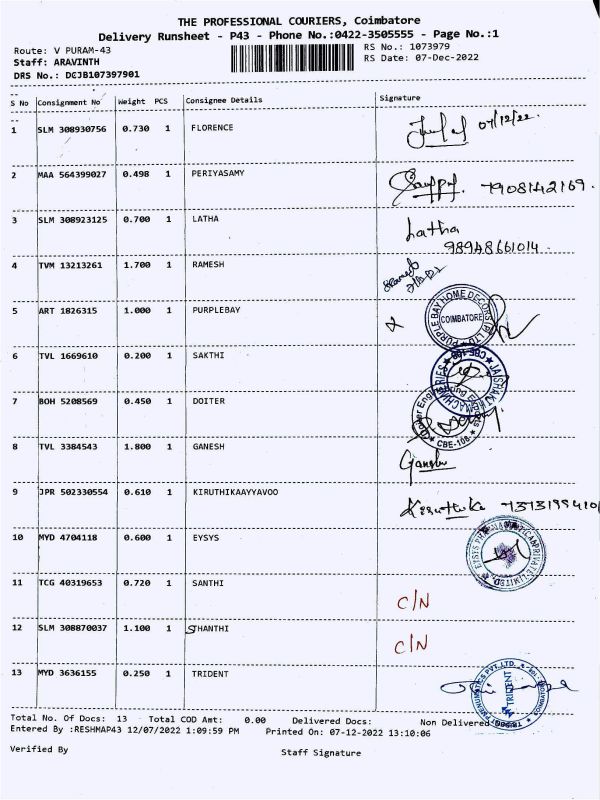 THE PROFESSIONAL COURIERS, Coimbatore
Delivery Runsheet - P43 - Phone No.:0422-3505555 - Page No.:1
Route: V PURAM-43
RS No.: 1073979
Staff: ARAVINTH
RS Date: 07-Dec-2022
DRS No.: DCJB107397901
S No Consignment No Weight PCS Consignee Details Signature
1 SLM 308930756 0.730 1 FLORENCE 07/12/22.
2 MAA 564399027 0.498 1 PERIYASAMY 7908142169.
3 SLM 308923125 0.700 1 LATHA Latha
98948661014.
4 TVM 13213261 1.700 1 RAMESH
5 ART 1826315 1.000 1 PURPLEBAY PURPLE BAY HOME DECORS (P) LTD COIMBATORE
6 TVL 1669610 0.200 1 SAKTHI CBE-108
7 BOH 5208569 0.450 1 DOITER CBE-108
8 TVL 3384543 1.800 1 GANESH Ganesh
9 JPR 502330554 0.610 1 KIRUTHIKAAYYAVOO Kiruthika
10 MYD 4704118 0.600 1 EYSYS
11 TCG 40319653 0.720 1 SANTHI C/N
12 SLM 308870037 1.100 1 SHANTHI C/N
13 MYD 3636155 0.250 1 TRIDENT TRIDENT
Total No. Of Docs: 13 Total COD Amt: 0.00 Delivered Docs: Non Delivered
Entered By :RESHMAP43 12/07/2022 1:09:59 PM Printed On: 07-12-2022 13:10:06
Verified By
Staff Signature